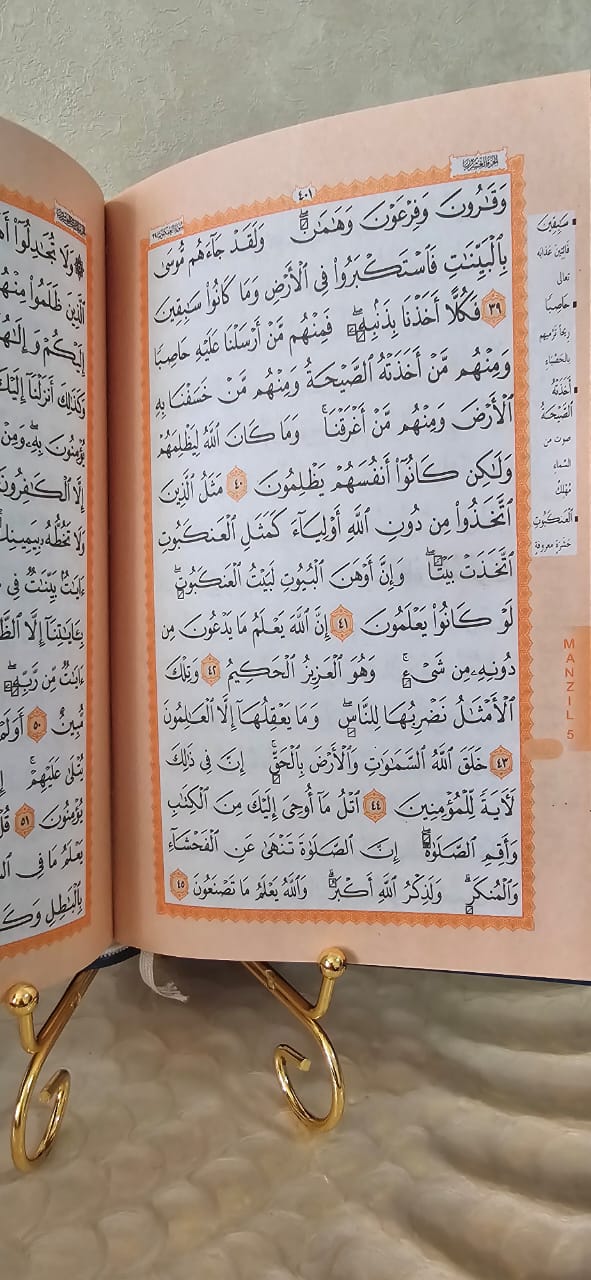 الجزء العشرون
٤٠١
وَقَٰرُونَ وَفِرْعَوْنَ وَهَٰمَٰنَۖ وَلَقَدْ جَآءَهُم مُّوسَىٰ
بِٱلْبَيِّنَٰتِ فَٱسْتَكْبَرُوا۟ فِى ٱلْأَرْضِ وَمَا كَانُوا۟ سَٰبِقِينَ
٣٩ فَكُلًّا أَخَذْنَا بِذَنۢبِهِۦۖ فَمِنْهُم مَّنْ أَرْسَلْنَا عَلَيْهِ حَاصِبًا
وَمِنْهُم مَّنْ أَخَذَتْهُ ٱلصَّيْحَةُ وَمِنْهُم مَّنْ خَسَفْنَا بِهِ
ٱلْأَرْضَ وَمِنْهُم مَّنْ أَغْرَقْنَاۚ وَمَا كَانَ ٱللَّهُ لِيَظْلِمَهُمْ
وَلَٰكِن كَانُوٓا۟ أَنفُسَهُمْ يَظْلِمُونَ ٤٠ مَثَلُ ٱلَّذِينَ
ٱتَّخَذُوا۟ مِن دُونِ ٱللَّهِ أَوْلِيَآءَ كَمَثَلِ ٱلْعَنكَبُوتِ
ٱتَّخَذَتْ بَيْتًاۖ وَإِنَّ أَوْهَنَ ٱلْبُيُوتِ لَبَيْتُ ٱلْعَنكَبُوتِۖ
لَوْ كَانُوا۟ يَعْلَمُونَ ٤١ إِنَّ ٱللَّهَ يَعْلَمُ مَا يَدْعُونَ مِن
دُونِهِۦ مِن شَىْءٍۚ وَهُوَ ٱلْعَزِيزُ ٱلْحَكِيمُ ٤٢ وَتِلْكَ
ٱلْأَمْثَٰلُ نَضْرِبُهَا لِلنَّاسِۖ وَمَا يَعْقِلُهَآ إِلَّا ٱلْعَٰلِمُونَ
٤٣ خَلَقَ ٱللَّهُ ٱلسَّمَٰوَٰتِ وَٱلْأَرْضَ بِٱلْحَقِّۚ إِنَّ فِى ذَٰلِكَ
لَءَايَةً لِّلْمُؤْمِنِينَ ٤٤ ٱتْلُ مَآ أُوحِىَ إِلَيْكَ مِنَ ٱلْكِتَٰبِ
وَأَقِمِ ٱلصَّلَوٰةَۖ إِنَّ ٱلصَّلَوٰةَ تَنْهَىٰ عَنِ ٱلْفَحْشَآءِ
وَٱلْمُنكَرِۗ وَلَذِكْرُ ٱللَّهِ أَكْبَرُۗ وَٱللَّهُ يَعْلَمُ مَا تَصْنَعُونَ ٤٥
سَٰبِقِينَ
فائتين عذابه
تعالى
حَاصِبًا
ريحًا ترميهم
بالحصباء
أَخَذَتْهُ
الصَّيْحَةُ
صوت من
السماء
مُهلك
الْعَنكَبُوتِ
حشرة معروفة
MANZIL 5
۞ وَلَا تُجَٰدِلُوٓا۟
ٱلَّذِينَ ظَلَمُوا۟ مِنْهُ
إِلَيْكُمْ وَإِلَٰهُ
وَكَذَٰلِكَ أَنزَلْنَآ إِلَيْكَ
يُؤْمِنُونَ بِهِۦۖ وَمِنْ
إِلَّا ٱلْكَٰفِرُونَ
وَلَا تَخُطُّهُۥ بِيَمِينِكَ
ءَايَٰتٌۢ بَيِّنَٰتٌ فِى
بِـَٔايَٰتِنَآ إِلَّا ٱلظَّ
ءَايَٰتٌ مِّن رَّبِّهِۦۖ
مُّبِينٌ ٥٠ أَوَلَمْ
يُتْلَىٰ عَلَيْهِمْۚ
يُؤْمِنُونَ ٥١ قُلْ
يَعْلَمُ مَا فِى
بِٱلْبَٰطِلِ وَكَ